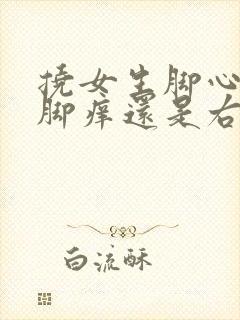 撓女生脚心
脚痒還是右
白流酥